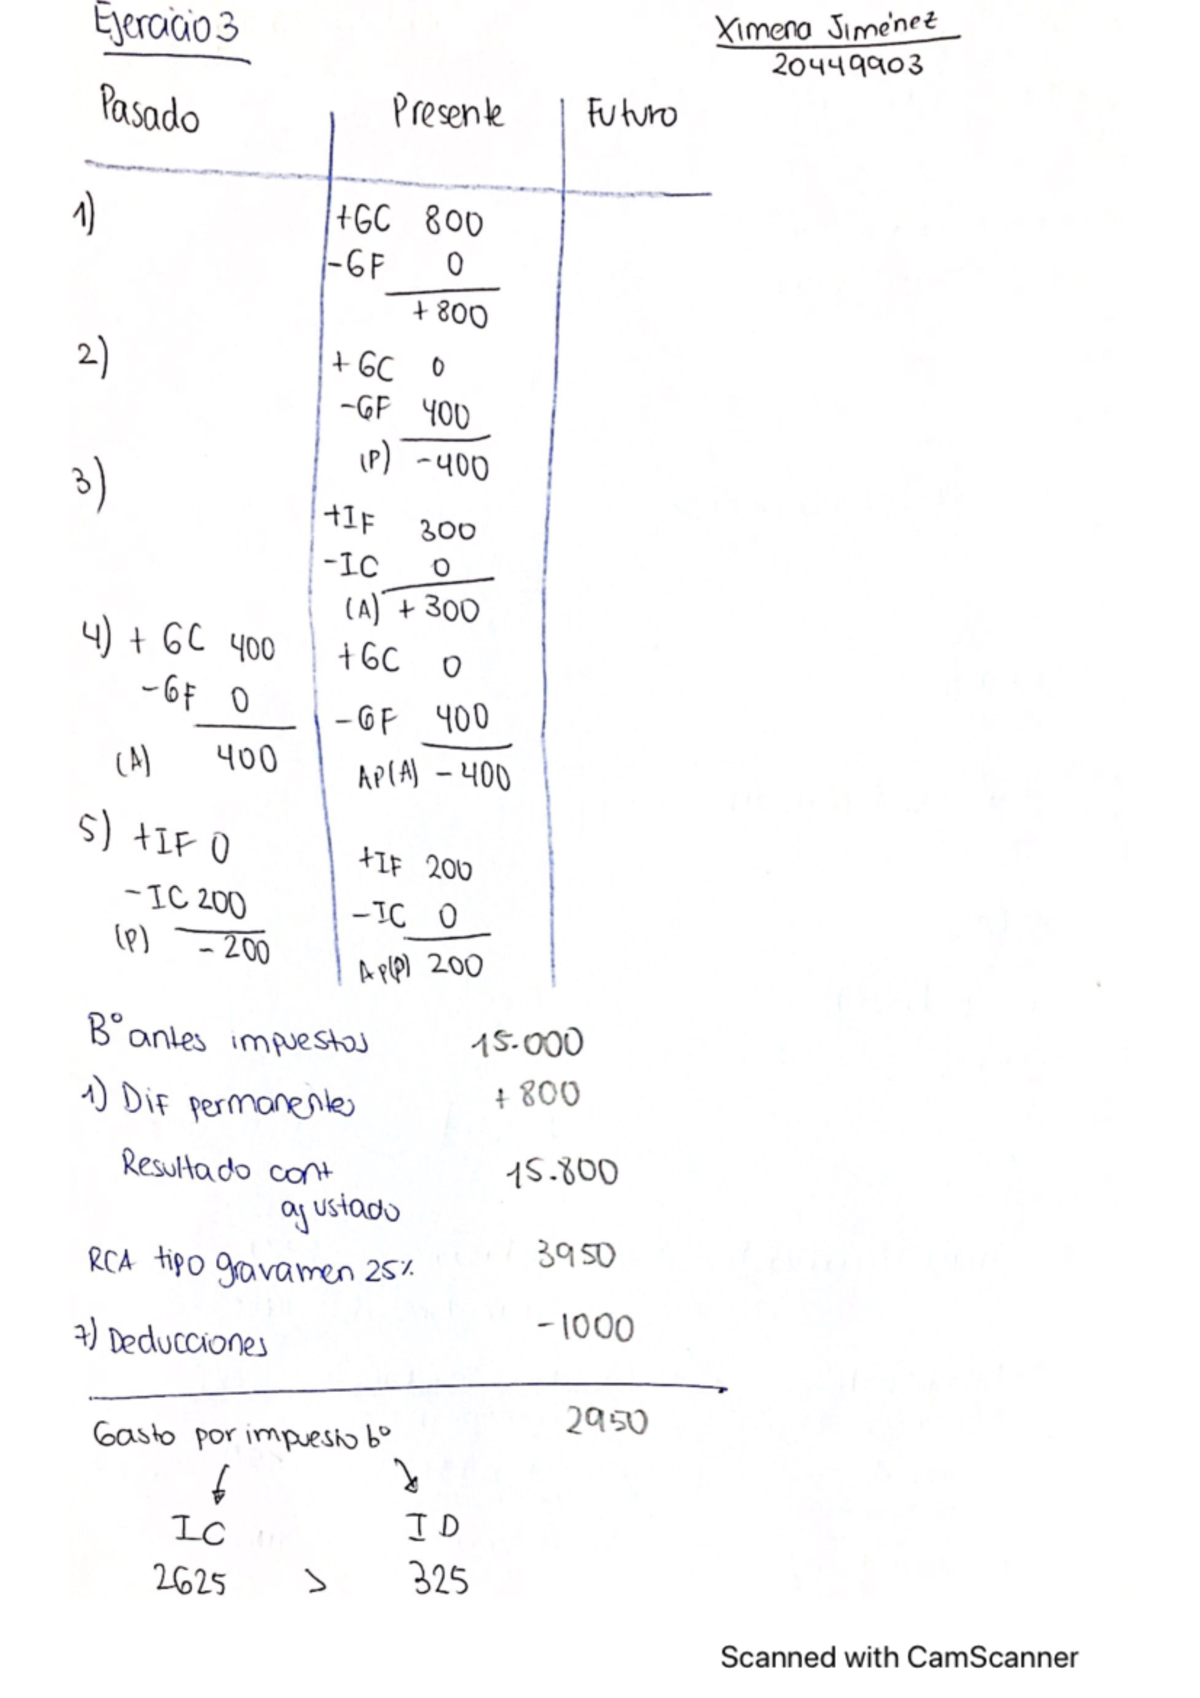 Ejercicio 3
Ximena Jiménez
20449903
Pasado Presente Futuro
1) +GC 800
-GF 0
+800
2) +GC 0
-GF 400
(P) -400
3) +IF 300
-IC 0
(A) +300
4) + GC 400 +GC 0
-GF 0 -GF 400
(A) 400 AP(A) -400
5) +IF 0 +IF 200
-IC 200 -IC 0
(P) -200 AP(P) 200
Bº antes impuestos 15.000
1) Dif permanentes +800
Resultado cont 15.800
ajustado
RCA tipo gravamen 25% 3950
7) Deducciones -1000
Gasto por impuesto bº 2950
IC ID
2625 > 325
Scanned with CamScanner